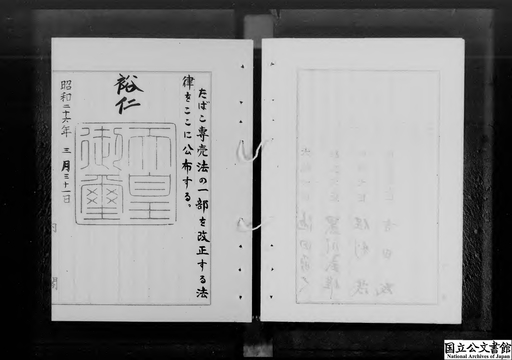 たばこ専売法の一部を改正する法
律をここに公布する。
裕仁
天皇
御璽
昭和二十六年三月三十一日
内閣
国立公文書館
National Archives of Japan